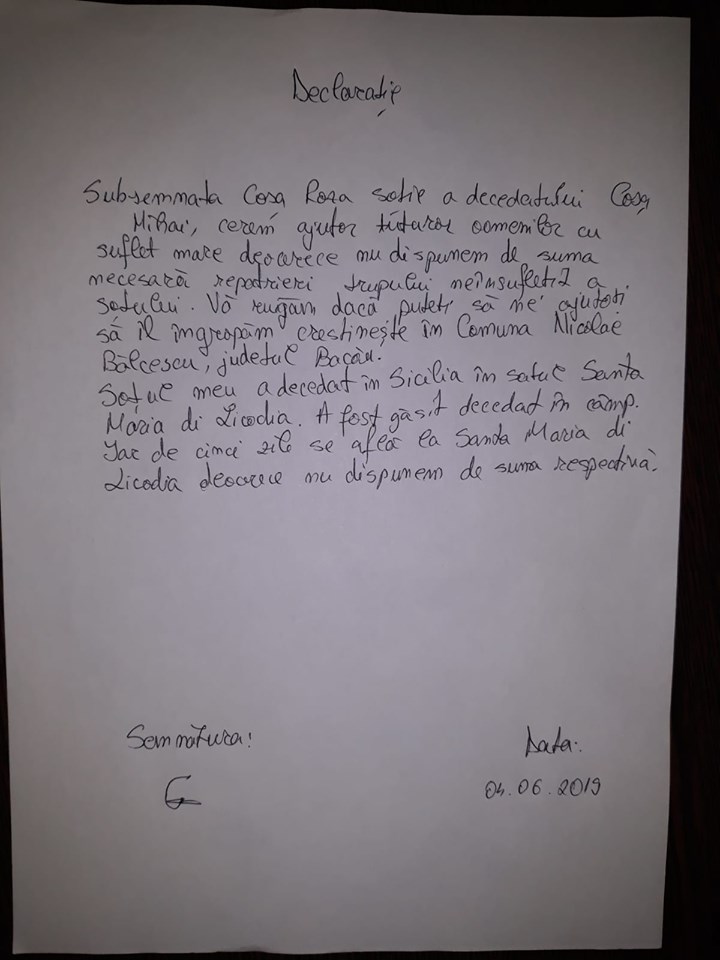 Declarație
Subsemnata Coșa Roza soție a decedatului Coșa
Mihai, cerem ajutor tuturor oamenilor cu
suflet mare deoarece nu dispunem de suma
necesară repatrieri trupului neînsuflețit a
soțului. Vă rugăm dacă puteți să ne ajutați
să îl îngropăm creștinește în Comuna Nicolae
Bălcescu, județul Bacău.
Soțul meu a decedat în Sicilia în satul Santa
Maria di Licodia. A fost găsit decedat în câmp.
Iar de cinci zile se află la Santa Maria di
Licodia deoarece nu dispunem de suma respectivă.
Semnătura: Data:
04.06.2019